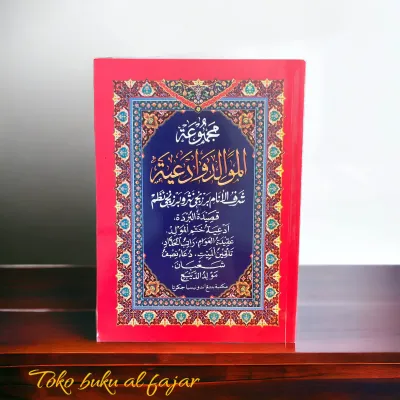 مجموعة
الموالد وأدعية
شرف الأنام برزنجي نثر و برزنجي نظم
قصيدة البردة،
أدعية ختم المولد،
عقيدة العوام، راتب الحداد،
تلقين الميت، دعاء نصف
شعبان،
مولد الديبع
Toko buku al fajar